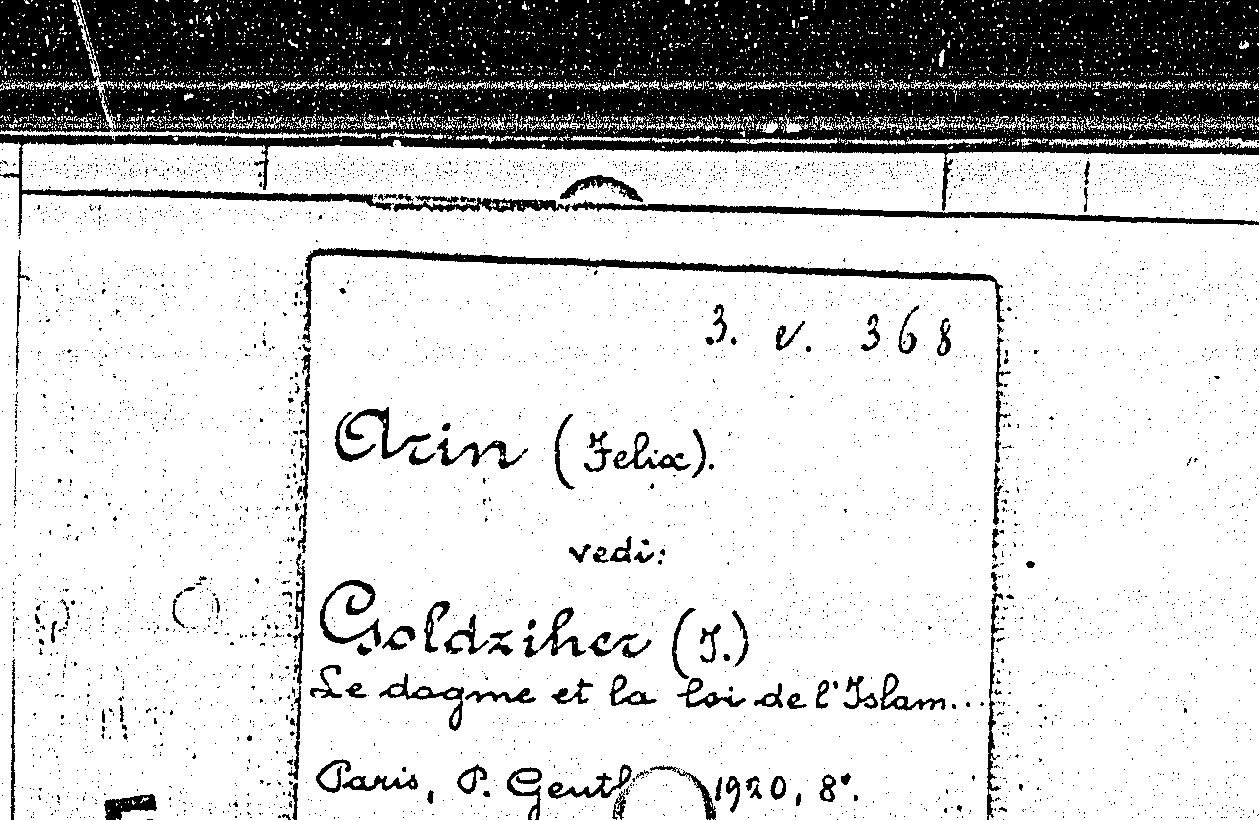 3. v. 368
Arin (Felix).
vedi:
Goldziher (I.)
Le dogme et la loi de l'Islam...
Paris, P. 1920, 8°.